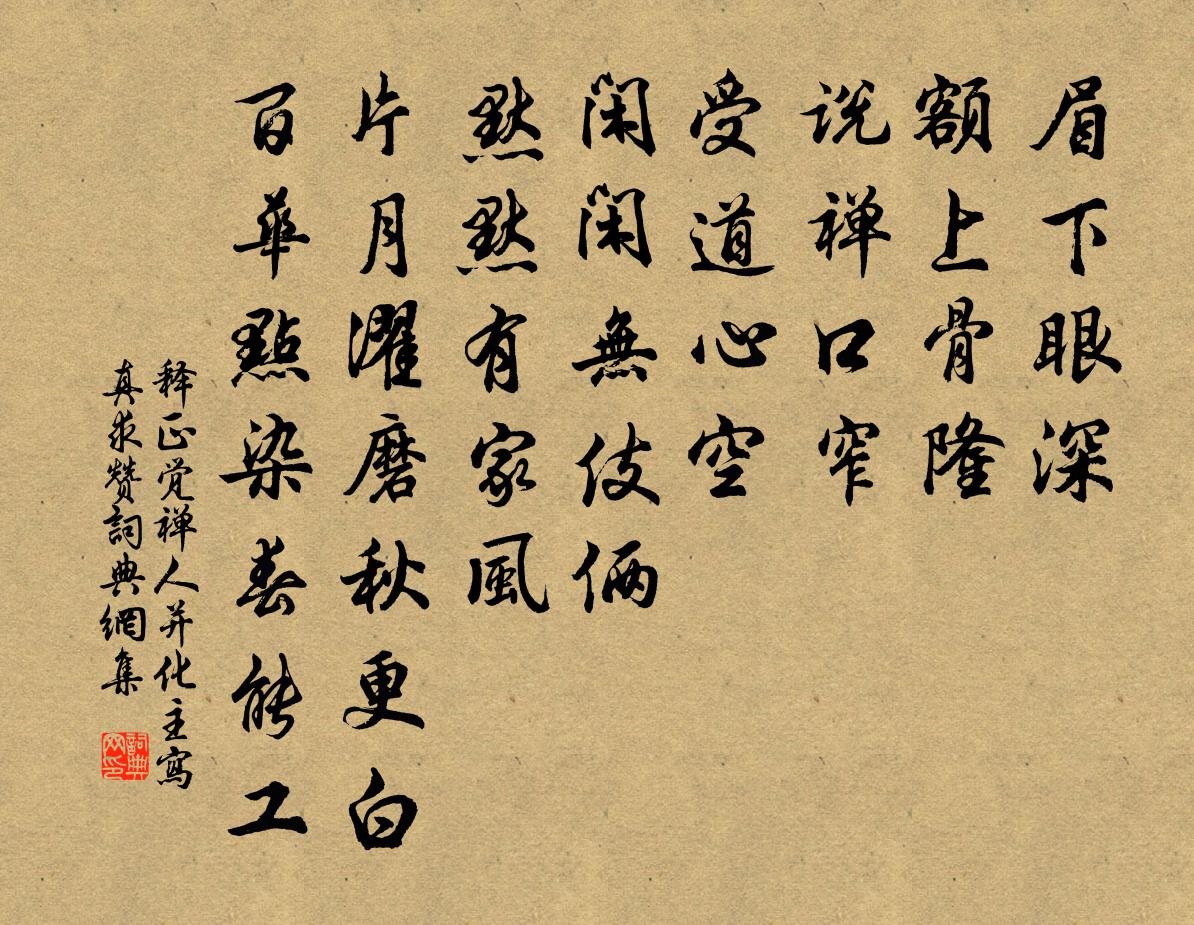 眉下眼深
額上骨隆
说禅口窄
受道心空
閑閑無伎倆
默默有家風
片月濯磨秋更白
百華點染春能工
释正觉禅人并化主寫
真求赞詞典網集
詞典网印